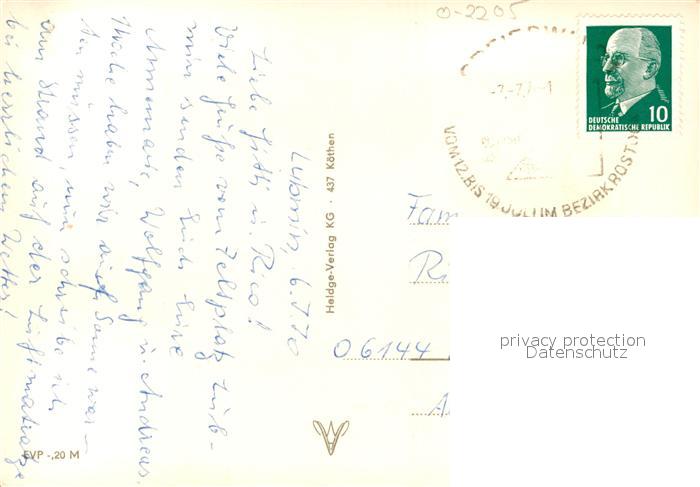 0-2205
DEUTSCHE
DEMOKRATISCHE REPUBLIK
10
-7.-7.7
VOM 12. BIS 19. JULI IM BEZIRK ROSTOC
Lubmin, 6.7.70
Liebe Jetti u. Rico!
Viele Grüße vom Zeltplatz Lub-
min senden Euch Eure
Annemarie, Wolfgang u. Andreas.
Heute haben wir auch Sonne
müssen, nun schreibe ich
am Strand auf der Luftmatratze
bei herrlichem Wetter!
Heldge-Verlag KG · 437 Köthen
Fam
Ri
06144
A
EVP -,20 M
privacy protection
Datenschutz